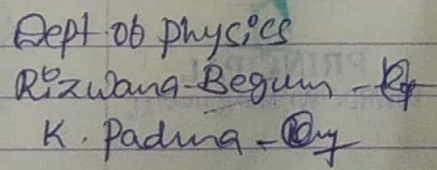 Dept ob physics
Rizwana Begum -
K. Padma -